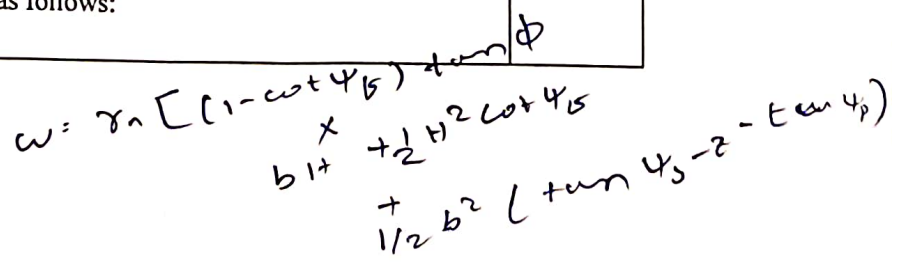 as follows:
w = γn [(1-cot Ψfs) tan ϕ
× bH + 1/2 H² cot Ψfs
+ 1/2 b² (tan Ψs - z - tan Ψp)